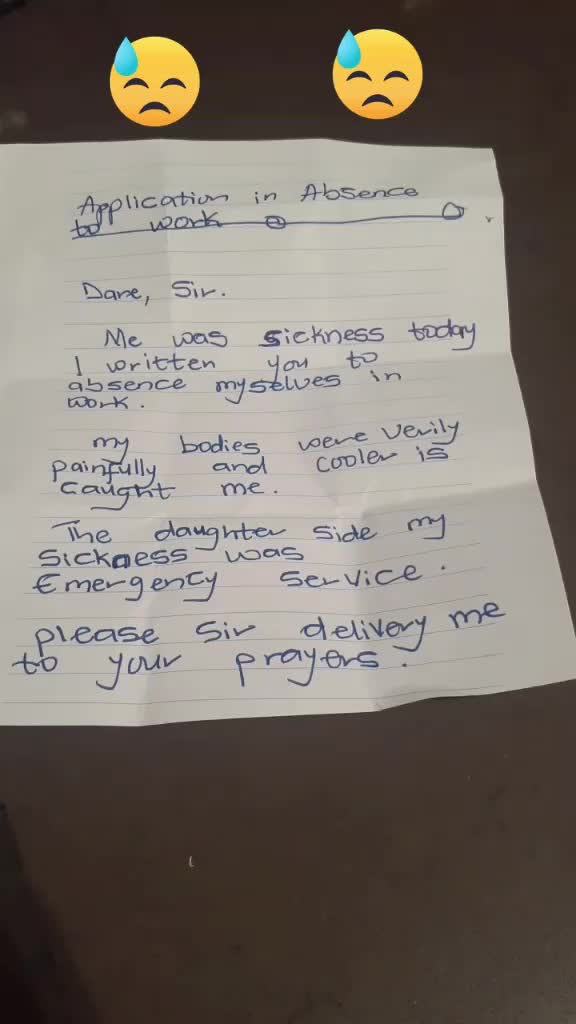 Application in Absence
to work
Dare, Sir.
Me was sickness today
I written you to
absence myselves in
work.
my bodies were verily
painfully and cooler is
caught me.
The daughter side my
sickness was
Emergency service.
please sir delivery me
to your prayers.